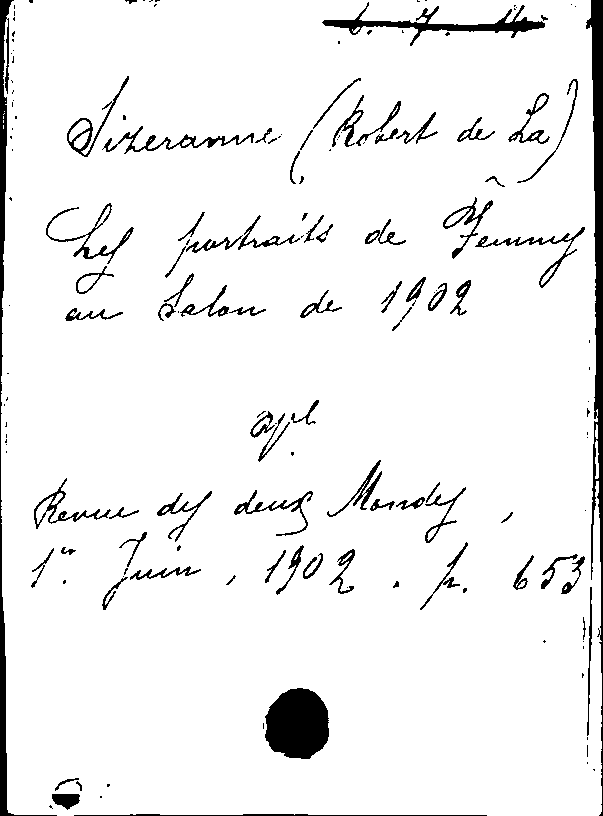 6. 7. 14
Sizeranne (Robert de La)
Les portraits de Femmes
au Salon de 1902
Revue des deux Mondes,
1er Juin, 1902. p. 653